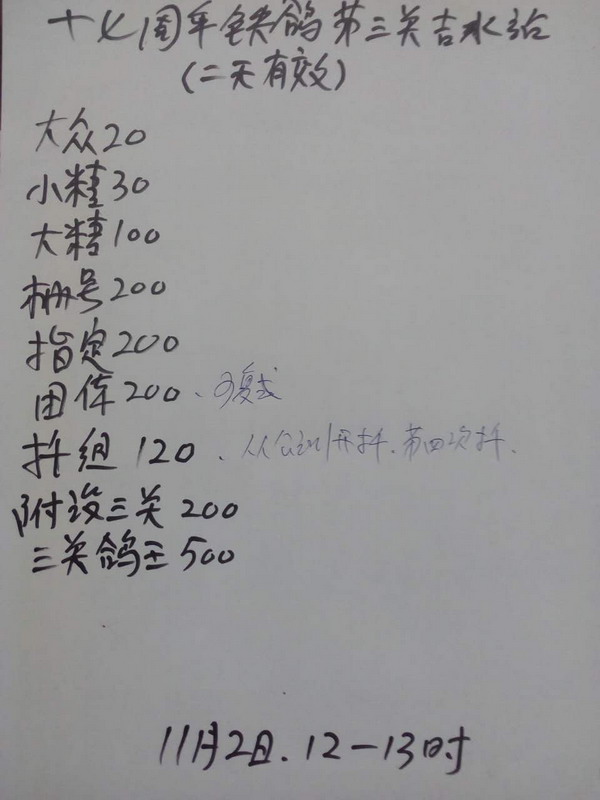 十七周年铁鸽第三关吉水站
(二天有效)
大众20
小精30
大精100
栅号200
指定200
团体200、可复式
抖组120、从会训开抖、第四次抖、
附设三关200
三关鸽王500
11月2日.12-13时